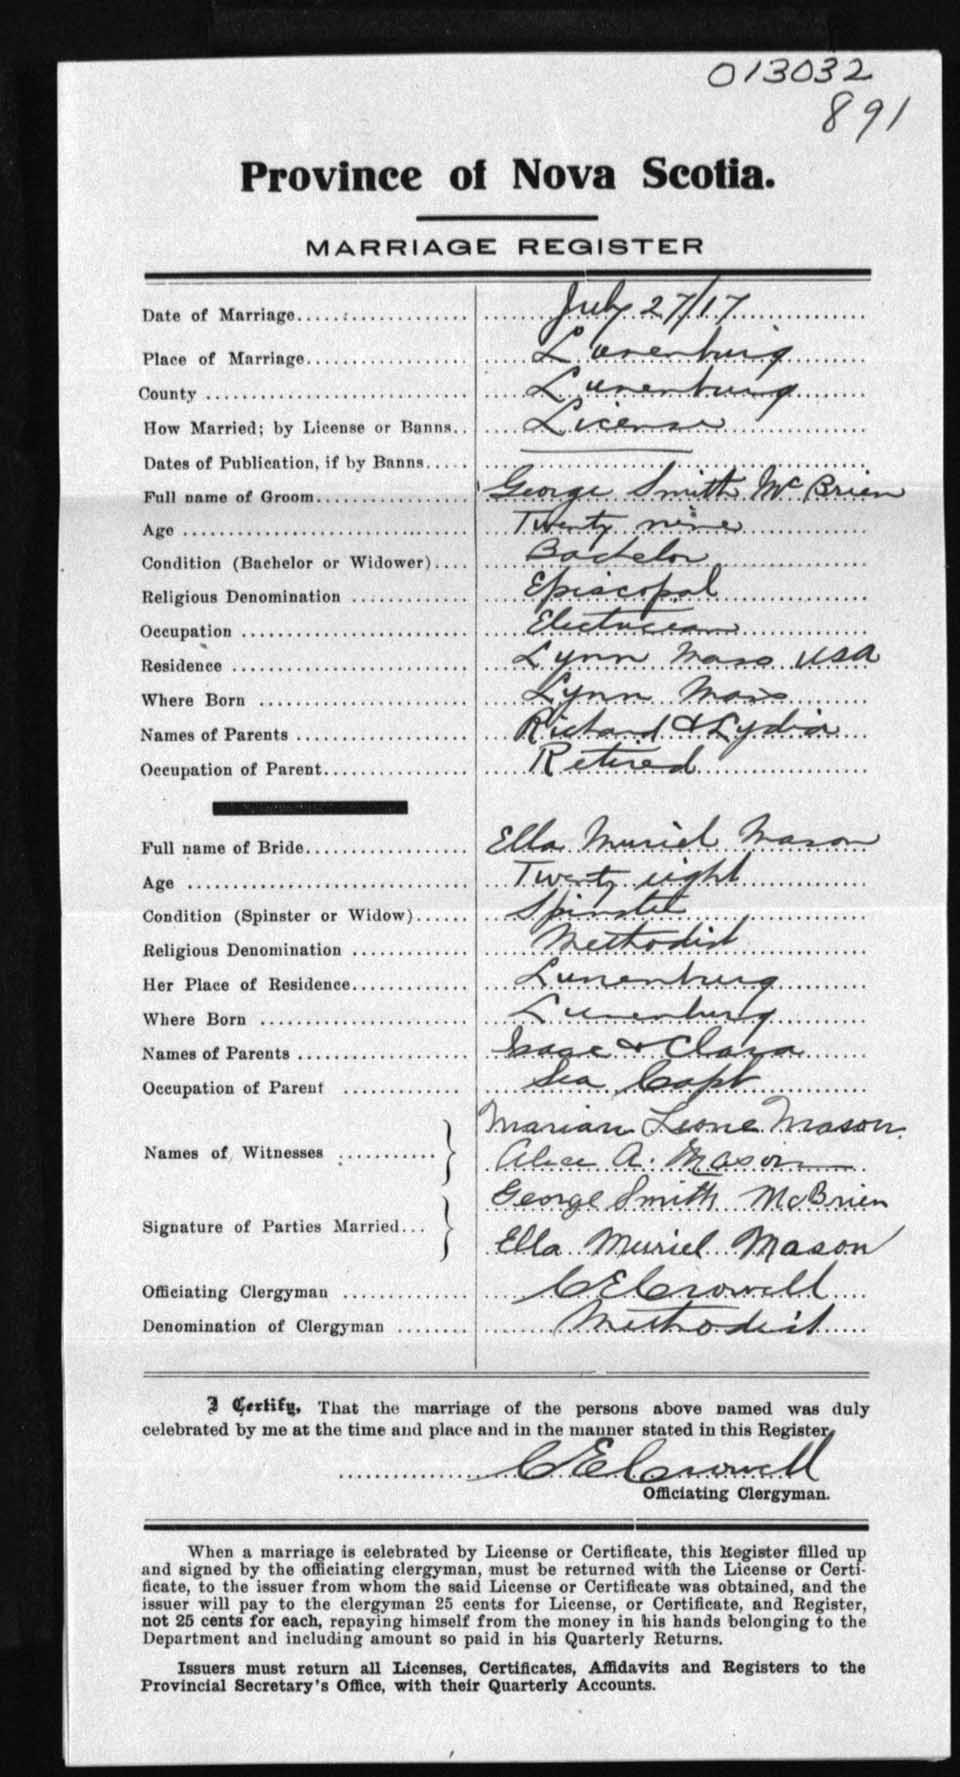 013032
891
Province of Nova Scotia.
MARRIAGE REGISTER
Date of Marriage July 27/17
Place of Marriage Lunenburg
County Lunenburg
How Married; by License or Banns License
Dates of Publication, if by Banns
Full name of Groom George Smith McBrien
Age Twenty nine
Condition (Bachelor or Widower) Bachelor
Religious Denomination Episcopal
Occupation Electrician
Residence Lynn Mass USA
Where Born Lynn Mass
Names of Parents Richard & Lydia
Occupation of Parent Retired
Full name of Bride Ella Muriel Mason
Age Twenty eight
Condition (Spinster or Widow) Spinster
Religious Denomination Methodist
Her Place of Residence Lunenburg
Where Born Lunenburg
Names of Parents Isaac & Clara
Occupation of Parent Sea Capt
Names of Witnesses Marian Leone Mason
Alice A. Mason
Signature of Parties Married George Smith McBrien
Ella Muriel Mason
Officiating Clergyman C E Crowell
Denomination of Clergyman Methodist
I Certify, That the marriage of the persons above named was duly
celebrated by me at the time and place and in the manner stated in this Register.
C E Crowell
Officiating Clergyman.
When a marriage is celebrated by License or Certificate, this Register filled up
and signed by the officiating clergyman, must be returned with the License or Certi-
ficate, to the issuer from whom the said License or Certificate was obtained, and the
issuer will pay to the clergyman 25 cents for License, or Certificate, and Register,
not 25 cents for each, repaying himself from the money in his hands belonging to the
Department and including amount so paid in his Quarterly Returns.
Issuers must return all Licenses, Certificates, Affidavits and Registers to the
Provincial Secretary's Office, with their Quarterly Accounts.